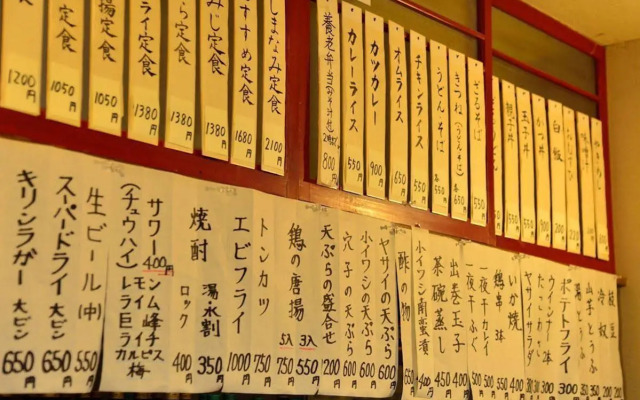 1200円
揚定食 1050円
定食 1050円
ライ定食 1380円
ら定食 1380円
みじ定食 1380円
すすめ定食 1680円
しまなみ定食 2100円
養老弁当 800円
カレーライス 550円
カツカレー 900円
オムライス 650円
チキンライス 550円
うどん そば 550円
きつね(うどんそば) 650円
ざるそば 550円
親子丼 550円
玉子丼 550円
かつ丼 900円
白飯 200円
キリンラガー 大ビン 650円
スーパードライ 大ビン 650円
生ビール (中) 550円
サワー 400円
(チュウハイ)
焼酎
ロック 400円
湯水割 350円
エビフライ 1000円
トンカツ 750円
鶏の唐揚
5入 750円
3入 550円
天ぷらの盛合せ 1200円
穴子の天ぷら 600円
小イワシの天ぷら 600円
ヤサイの天ぷら 600円
酢の物 650円
小イワシ南蛮漬 400円
茶碗蒸し 450円
出巻玉子 400円
一夜干ふぐ 500円
一夜干カレイ 500円
鶏串 3本 550円
いか焼 400円
ヤサイサラダ
ウインナー
ポテトフライ 300円
湯とうふ
山芋とうふ
冷奴
枝豆